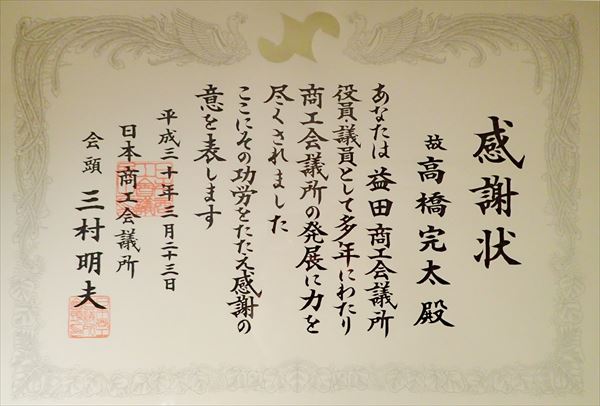 感謝状
故 高橋完太殿
あなたは益田商工会議所
役員・議員として多年にわたり
商工会議所の発展に力を
尽くされました
ここにその功労をたたえ感謝の
意を表します
平成三十年三月二十三日
日本商工会議所
会頭 三村明夫